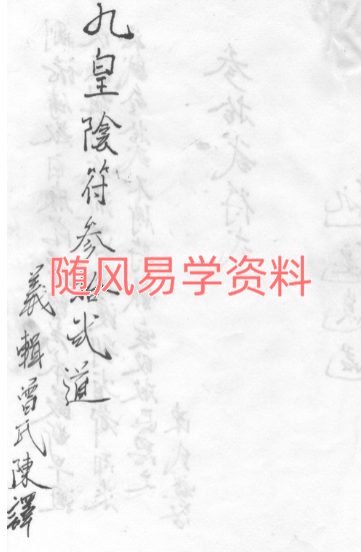 九皇陰符参拾弍道
義輯曾氏陳譯
随风易学资料